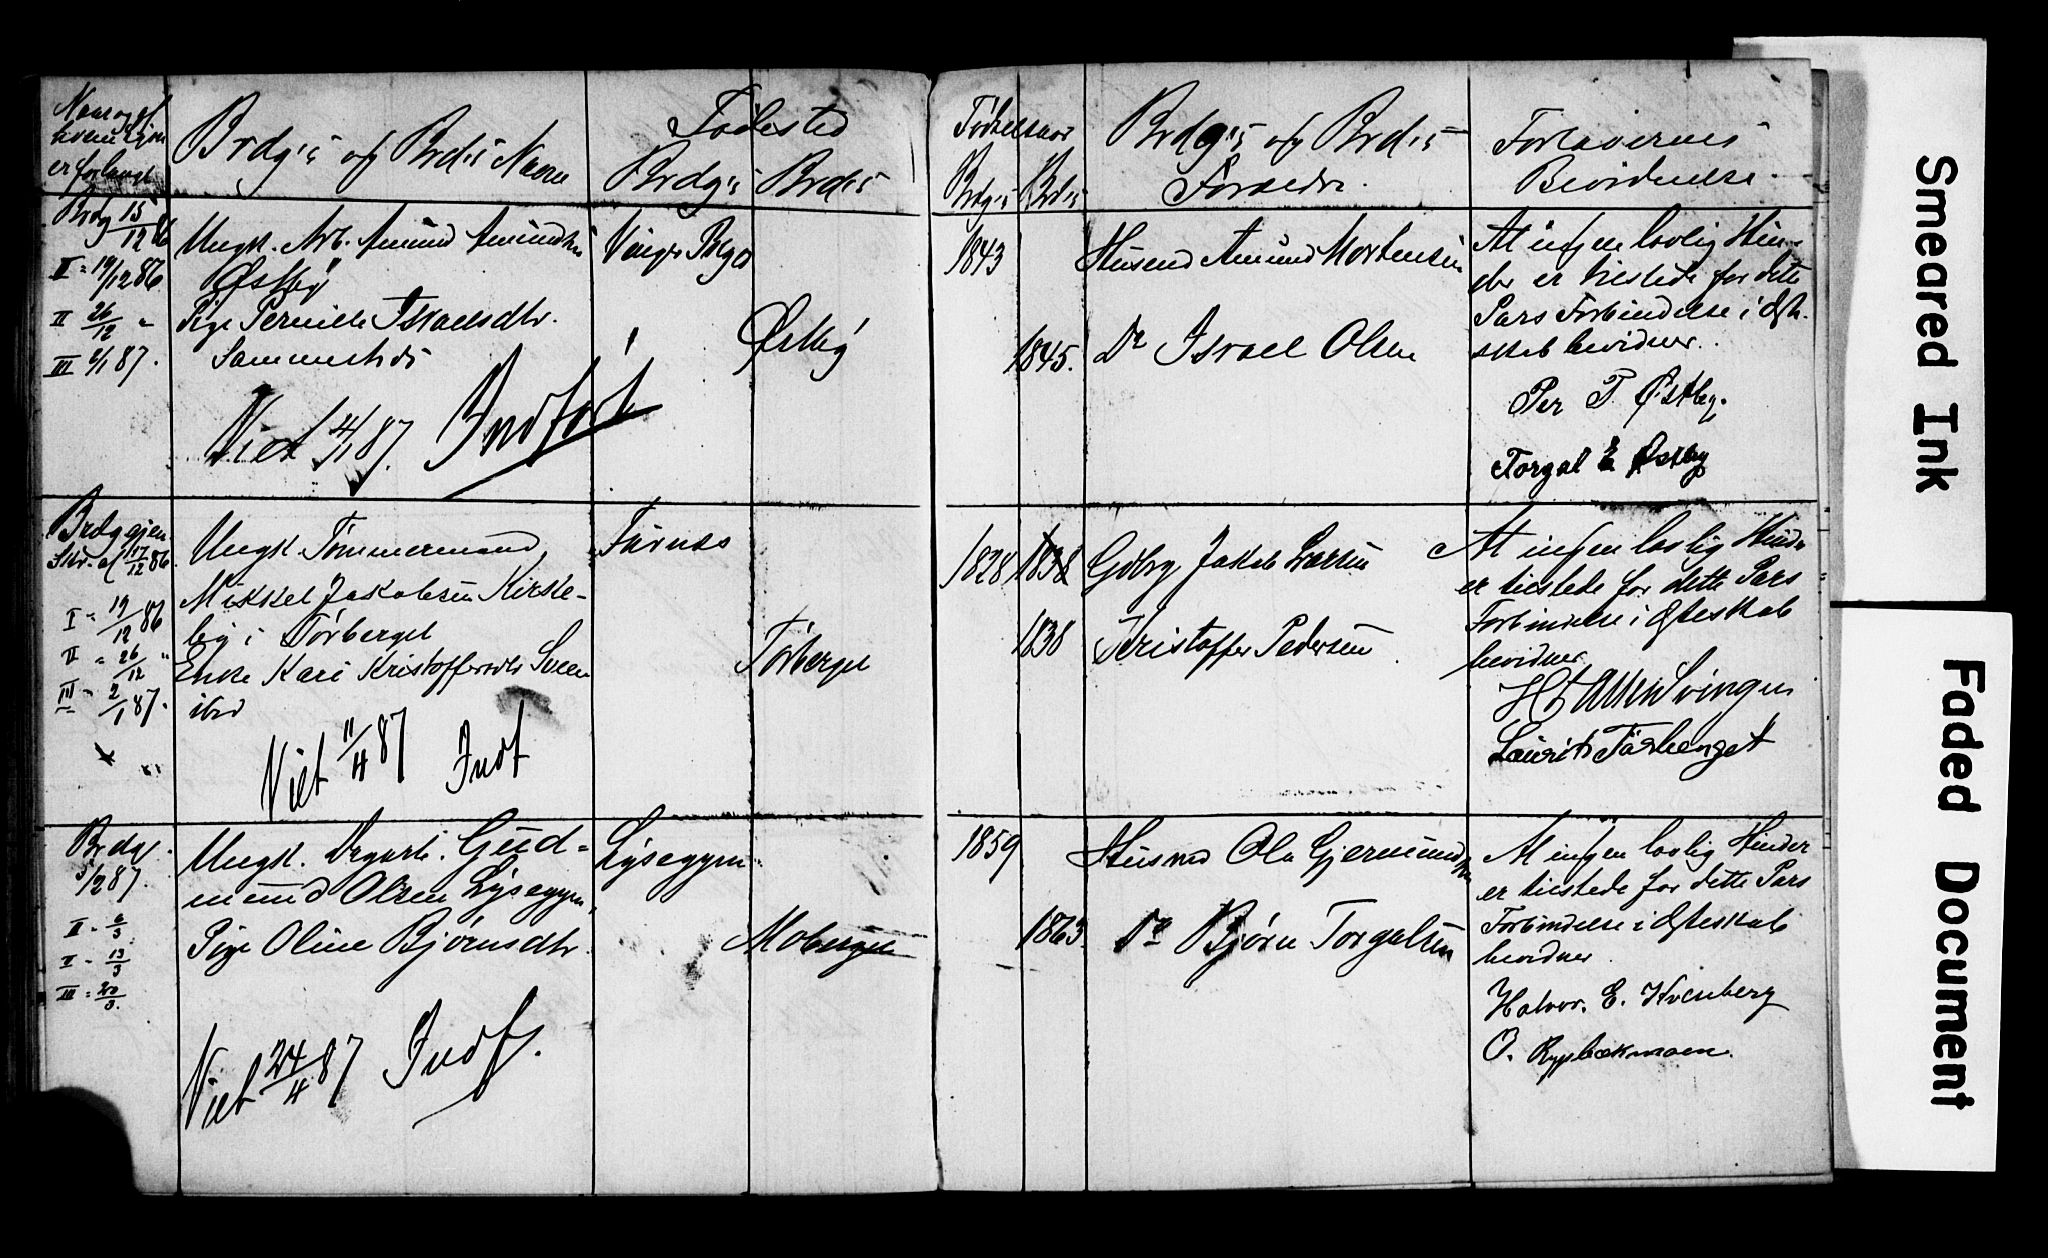 Naar og af
hvem Lysn.
er forlangt
Brdg's og Brd's Navn
Fødested
Brdg's Brd's
Fødselsaar
Brdg's Brd's
Brdg's og Brd's
Forældre.
Forloverens
Bevidnelse.
Brdg 15/12 86
I = 19/12 86
II 26/12 "
III 2/1 87.
Ungk. Arb. Amund Amundsen
Østby
Pige Pernille Israelsdtr.
Sammesteds
Viet 4/1 87. Indført
Vinger
Østby
1843
1845.
Husmd Amund Mortensen
Do Israel Olsen
At ingen lovlig Hin-
der er tilstede for dette
Pars Forbindelse i Ægte-
skab bevidner.
Per T. Østby.
Torgal E Østby
Brdg gjen.
Skr. af 17/12 86
I = 19/12 86
II = 26/12 "
III = 2/1 87.
Ungk Tømmermand
Mikkel Jakobsen Kirke-
by i Tørberget
Enke Kari Kristoffersdtr
ibid
Viet 11/4 87 Indf
Furnes
Tørberget
1828 1838
1838
Gdbrg Jakob Larsen
Kristoffer Pedersen
At ingen lovlig Hinder
er tilstede for dette Pars
Forbindelse i Ægteskab
bevidner
Svingen
Laurits Tørberget
Brdg.
5/2 87.
I = 6/3
II = 13/3
III = 20/3.
Ungk. Dagarb. Gud-
mund Olsen Lysegyen,
Pige Oline Bjørnsdtr.
Viet 24/4 87 Indf.
Lysegyen
Moberget
1859
1863.
Husmd Ola Gjermundsen
Do Bjørn Torgalsen
At ingen lovlig Hinder
er tilstede for dette Pars
Forbindelse i Ægteskab
bevidner.
Halvor. E. Kvenberg
O. Rypbækmoen.
Smeared Ink
Faded Document